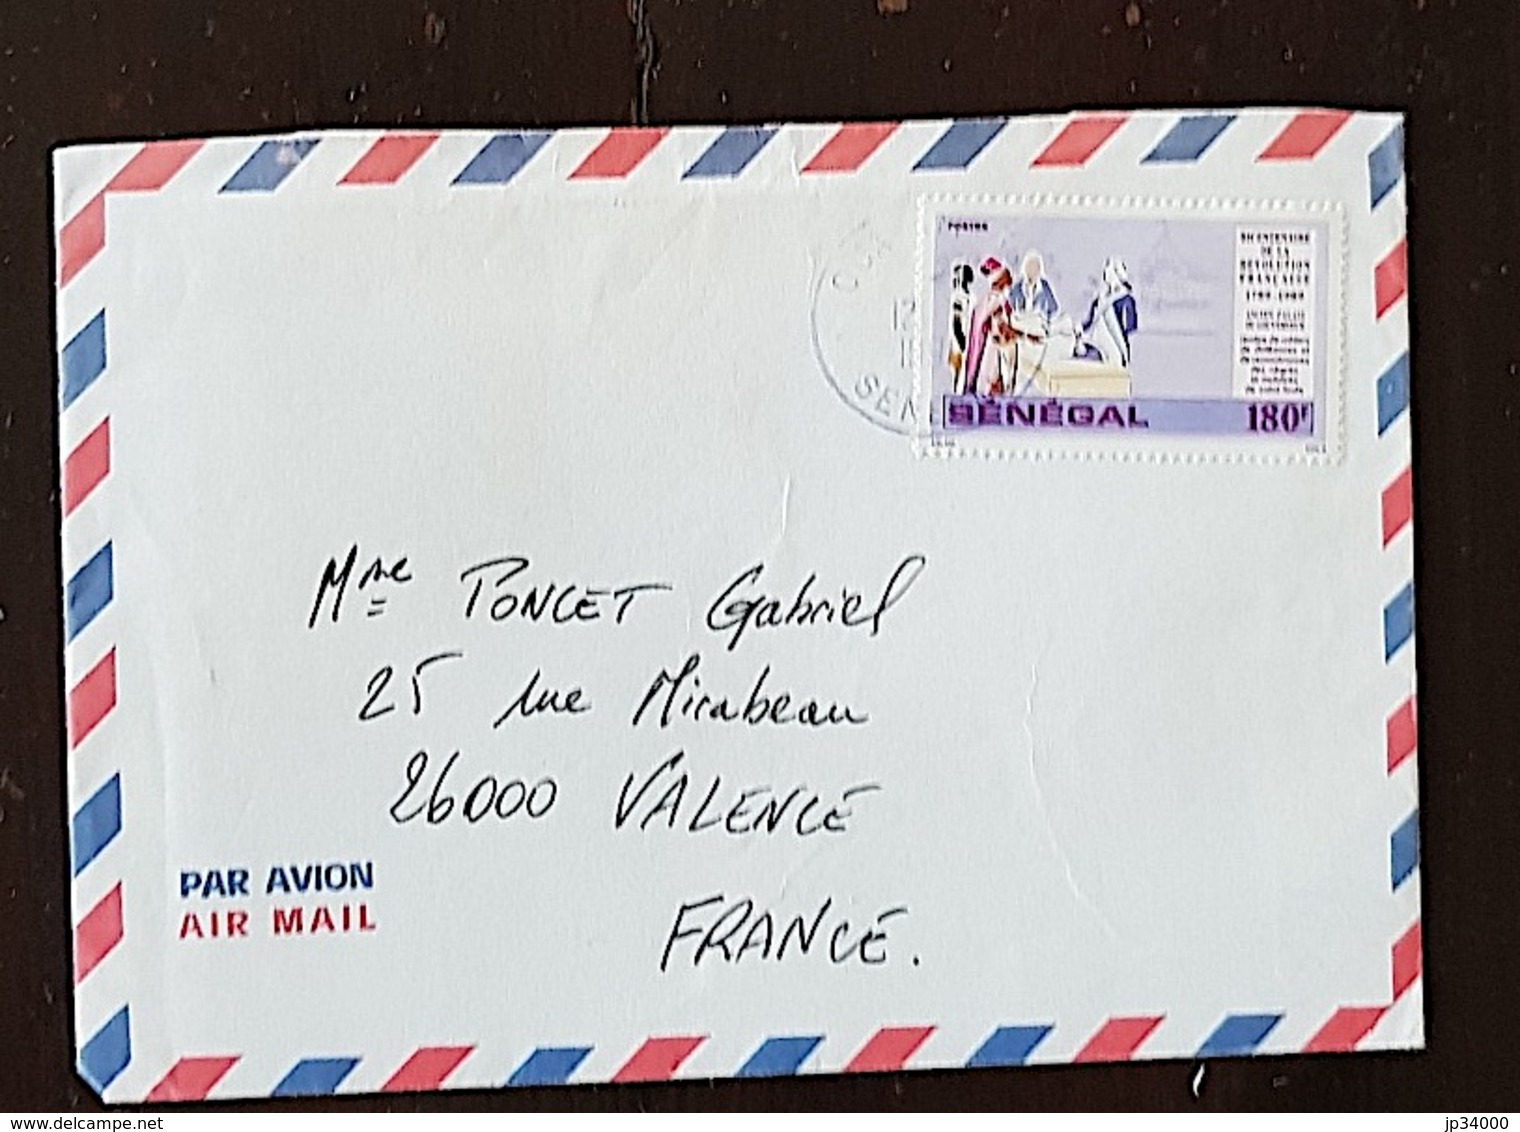 POSTES
BICENTENAIRE
DE LA
REVOLUTION
FRANÇAISE
1789-1989
SÉNÉGAL 180F
SEN
Mme PONCET Gabriel
25 rue Mirabeau
26000 VALENCE
FRANCE.
PAR AVION
AIR MAIL
www.delcampe.net
jp34000